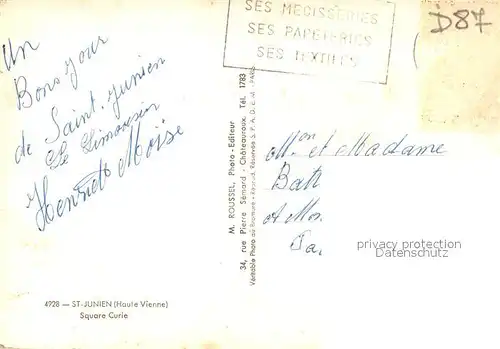 SES MEGISSERIES
SES PAPETERIES
SES TEXTILES
D87
Un
Bons jour
de Saint-Junien
Le Limousin
Henriette Moïse
M. ROUSSEL, Photo-Editeur
34, rue Pierre Sémard - Châteauroux. Tél. 1783
Véritable Photo au Bromure - Reprod. Réservée S.P.A.D.E.M. - PARIS
Mon et Madame
Bati
A Mon
privacy protection
Datenschutz
4928 — ST-JUNIEN (Haute Vienne)
Square Curie